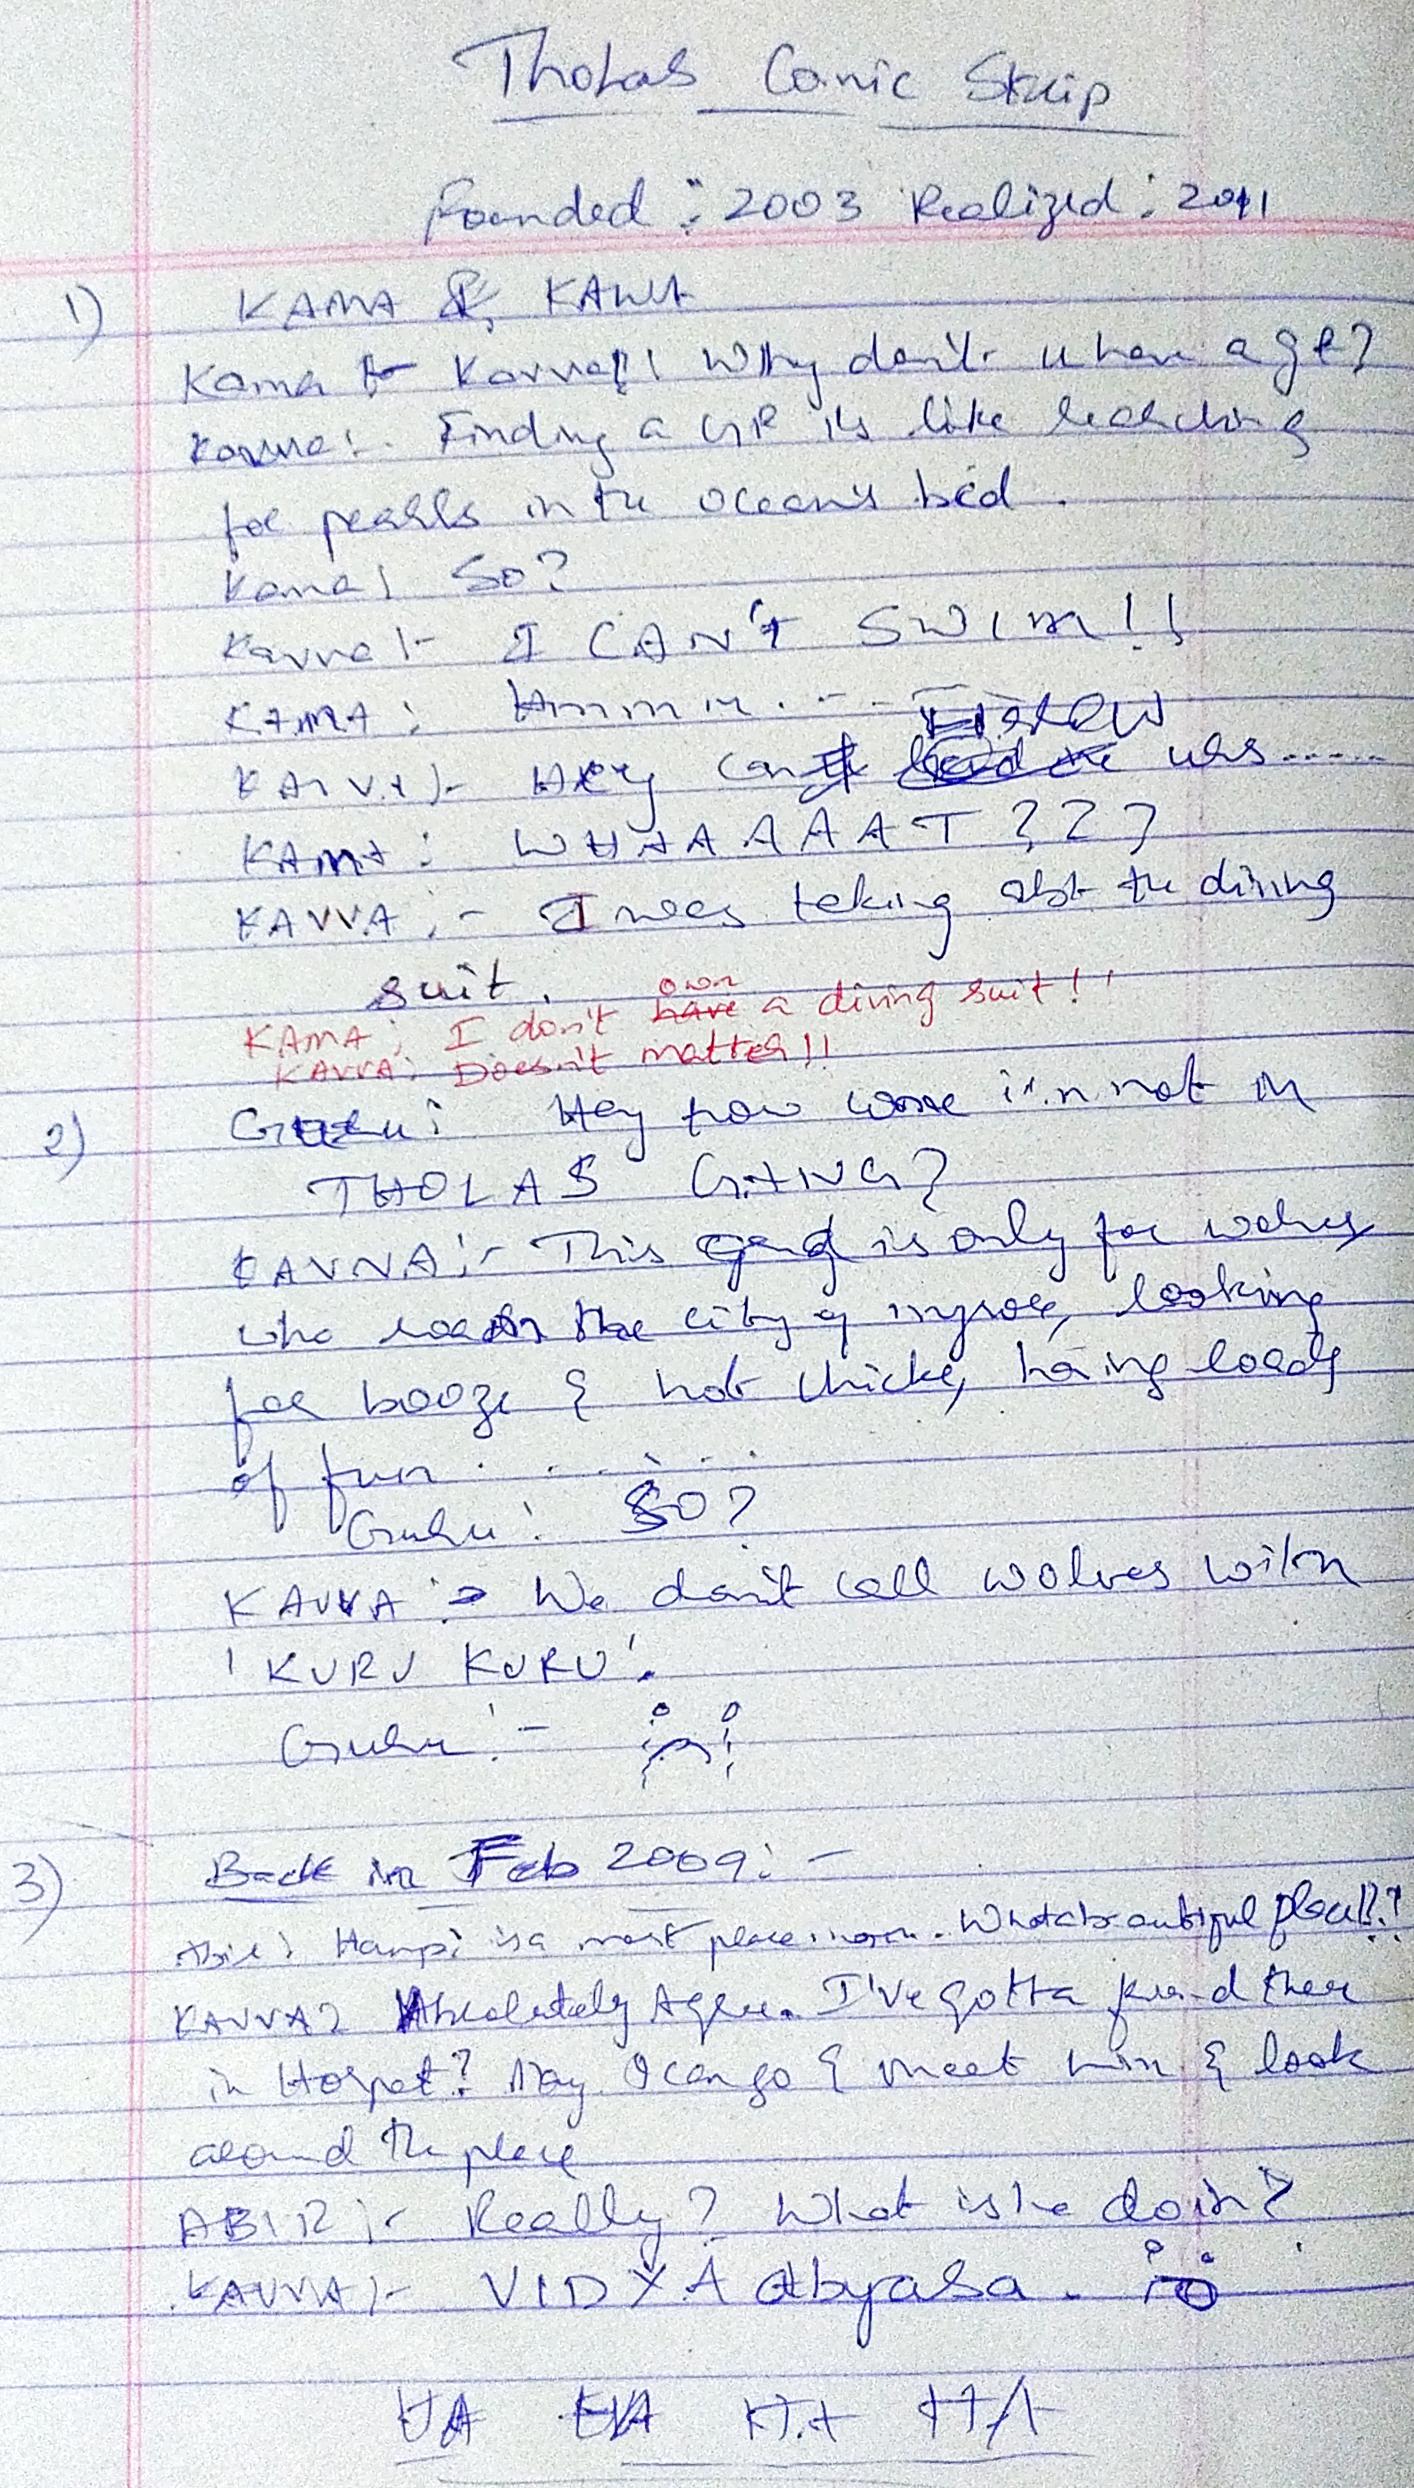 Tholas Comic Strip
Founded : 2003 Realized : 2011
1) KAMA & KAVVA
Kama to Kavva! Why don't u have a gf?
Kavva:- Finding a GF is like searching
for pearls in the ocean's bed.
Kama! So?
Kavva:- I CAN'T SWIM!!
KAMA: Hmmm...
KAVVA:- Hey can I urs......
KAMA: WHAAAAAT???
KAVVA:- I was taking abt the diving
suit.
KAMA: I don't own a diving suit!!
KAVVA: Doesn't matter!!
2) Guru: Hey how come i'm not in
THOLAS GANG?
KAVVA:- This gang is only for wolves
who roam the city of mysore, looking
for booze & hot chicks, having loads
of fun.......
Guru: SO?
KAVVA:- We don't call wolves with
'KURU KURU'.
Guru:-
3) Back in Feb 2009:-
Abir: Hampi is a must place. What a beautiful place!!?
KAVVA: Absolutely Agree. I've gotta friend there
in Hospet? May I can go & meet him & look
around the place
ABIR:- Really? What is he doin?
KAVVA:- VIDYA abyasa.
HA HA HA HA